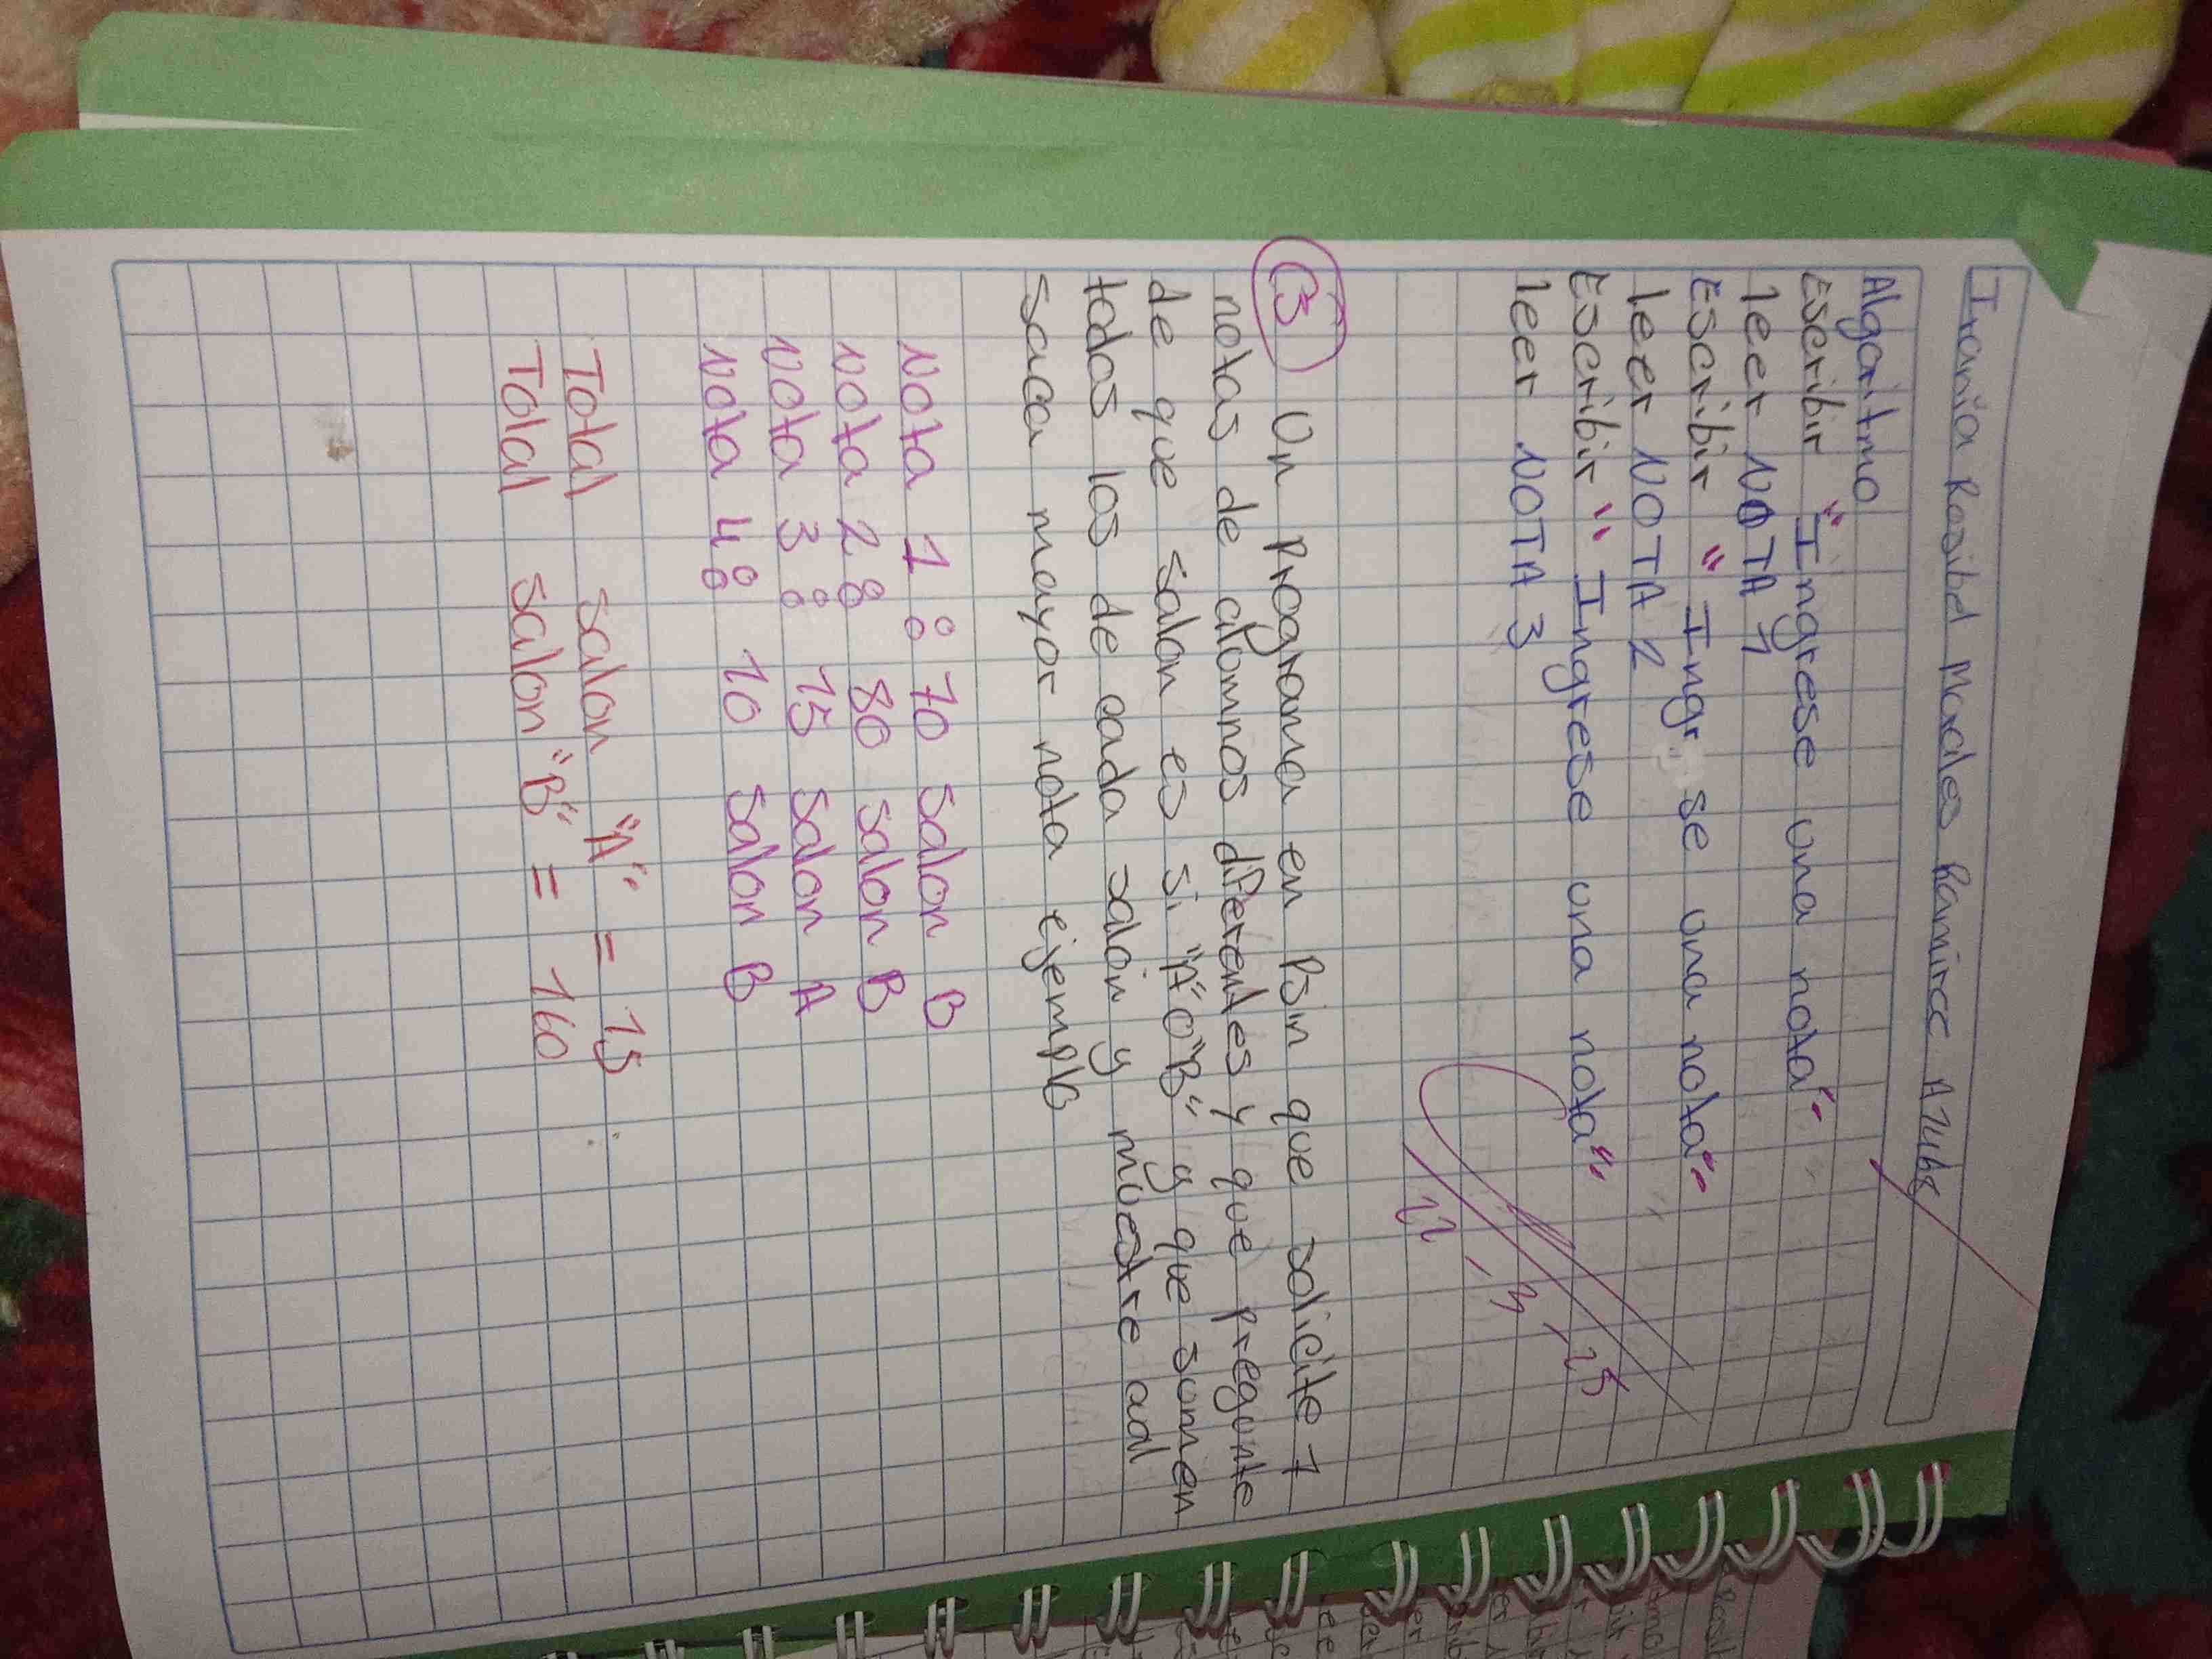 Morales Ramirez
Algoritmo
Escribir "Ingrese una nota"
leer NOTA 1
Escribir "Ingr se una nota"
leer NOTA 2
Escribir "Ingrese una nota"
leer NOTA 3
22, 3, 25
③ Un Programa en Psin que solicite 7
notas de alumnos diferentes y que pregunte
de que salon es si "A" O "B" y que sumen
todos los de cada salón y muestre cual
saca mayor nota ejemplo
Nota 1: 70 Salon B
Nota 2: 80 salon B
Nota 3: 75 Salon A
Nota 4: 10 Salon B
Total salon "A" = 75
Total salon "B" = 160